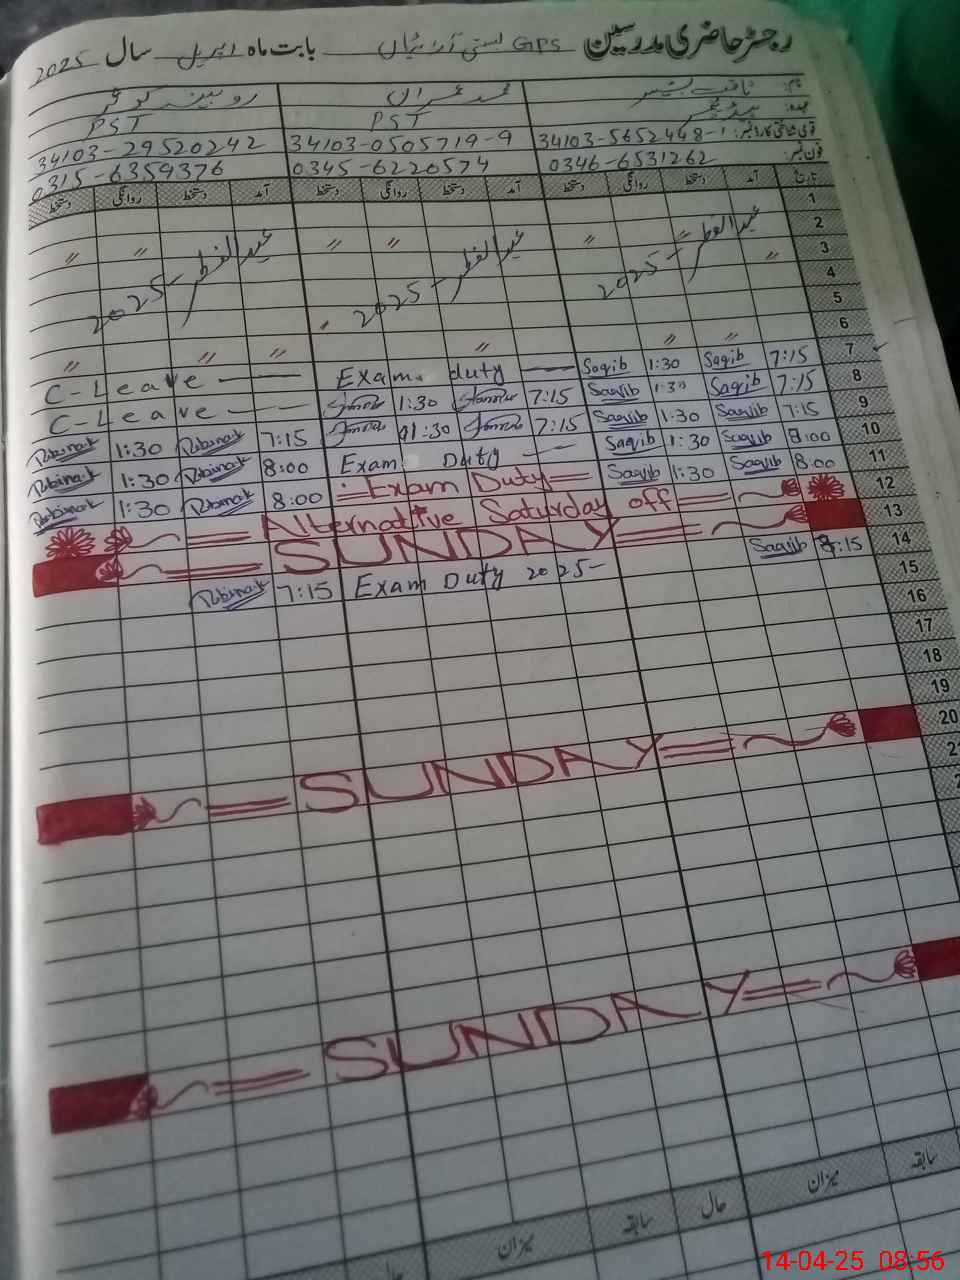 رجسٹر حاضری مدرسین GPS بستی بابت ماہ اپریل سال 2025
نام: ثاقب بشیر محمد عمران روبینہ کوثر
عہدہ: ہیڈ ٹیچر PST PST
قومی شناختی کارڈ نمبر: 34103-5652448-1 34103-0505719-9 34103-29520242
فون نمبر: 0346-6531262 0345-6220574 0315-6359376
تاریخ آمد دستخط روانگی دستخط آمد دستخط روانگی دستخط آمد دستخط روانگی دستخط
1
2
3
عید الفطر - 2025 عید الفطر - 2025 عید الفطر - 2025
4
5
6
7
C-Leave Exam duty Saqib 1:30 Saqib 7:15
8
C-Leave 1:30 7:15 Saqib 1:30 Saqib 7:15
9
Rubinak 1:30 Rubinak 7:15 1:30 7:15 Saqib 1:30 Saqib 7:15
10
Rubinak 1:30 Rubinak 8:00 Exam Duty Saqib 1:30 Saqib 8:00
11
Rubinak 1:30 Rubinak 8:00 Exam Duty Saqib 1:30 Saqib 8:00
12
Alternative Saturday off
13
SUNDAY
14
Rubinak 7:15 Exam Duty 2025- Saqib 8:15
15
16
17
18
19
20
SUNDAY
21
SUNDAY
سابقہ میزان حال سابقہ میزان حال
14-04-25 08:56